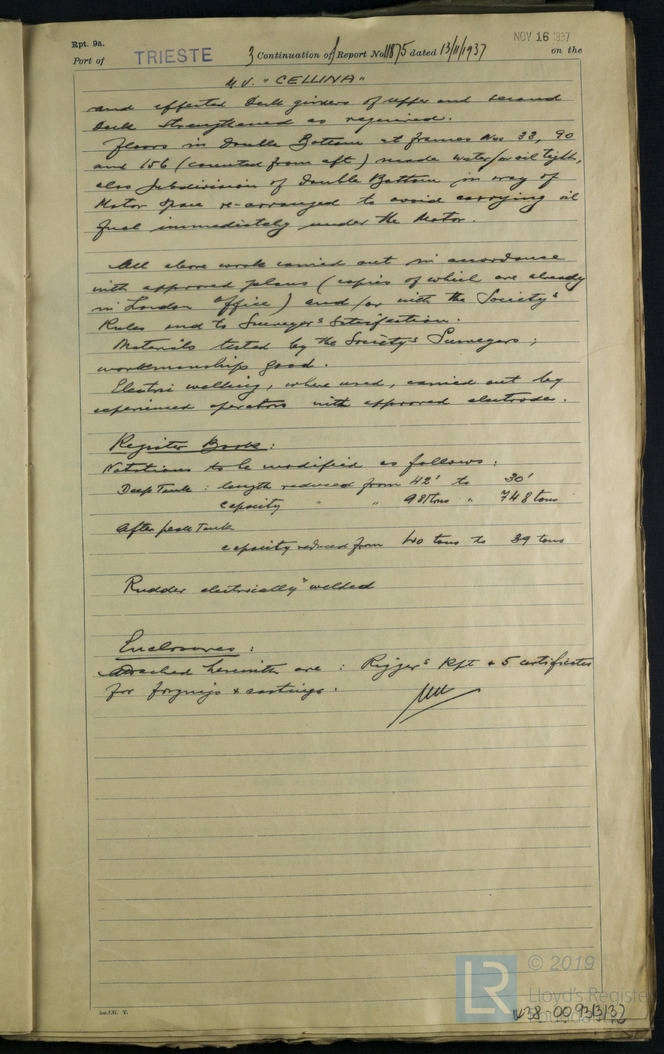 Rpt. 9a.
NOV 16 1937
Port of TRIESTE 3 Continuation of Report No 11875 dated 13/11/1937 on the
M.V. "CELLINA"
and effected Deck girders of upper and second
Deck strengthened as required.
Floors in Double Bottom at frames Nos 33, 90
and 156 (counted from aft) made water/or oil tight,
also subdivision of Double Bottom in way of
Motor Space re-arranged to avoid carrying oil
fuel immediately under the Motor.
All above work carried out in accordance
with approved plans (copies of which are already
in London Office) and/or with the Society's
Rules and to Surveyor's Satisfaction.
Materials tested by the Society's Surveyors;
workmanship good.
Electric welding, where used, carried out by
experienced operators with approved electrodes.
Register Book:
Notations to be modified as follows:
Deep Tank: length reduced from 42' to 30'
capacity " " 981 tons " 748 tons
After peak Tank
capacity reduced from 40 tons to 39 tons
Rudder electrically welded
Enclosures:
Attached herewith are: Rigger's Rpt & 5 certificates
for forgings & castings.
© 2019
LR
Lloyd's Register
Foundation